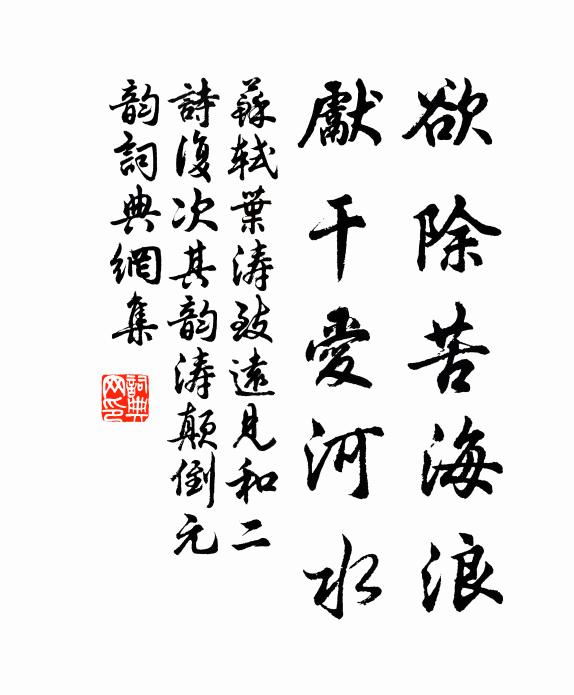 欲除苦海浪
獻干愛河水
蘇軾葉濤致遠見和二
詩復次其韵濤顛倒元
韵詞典網集
詞典
网印